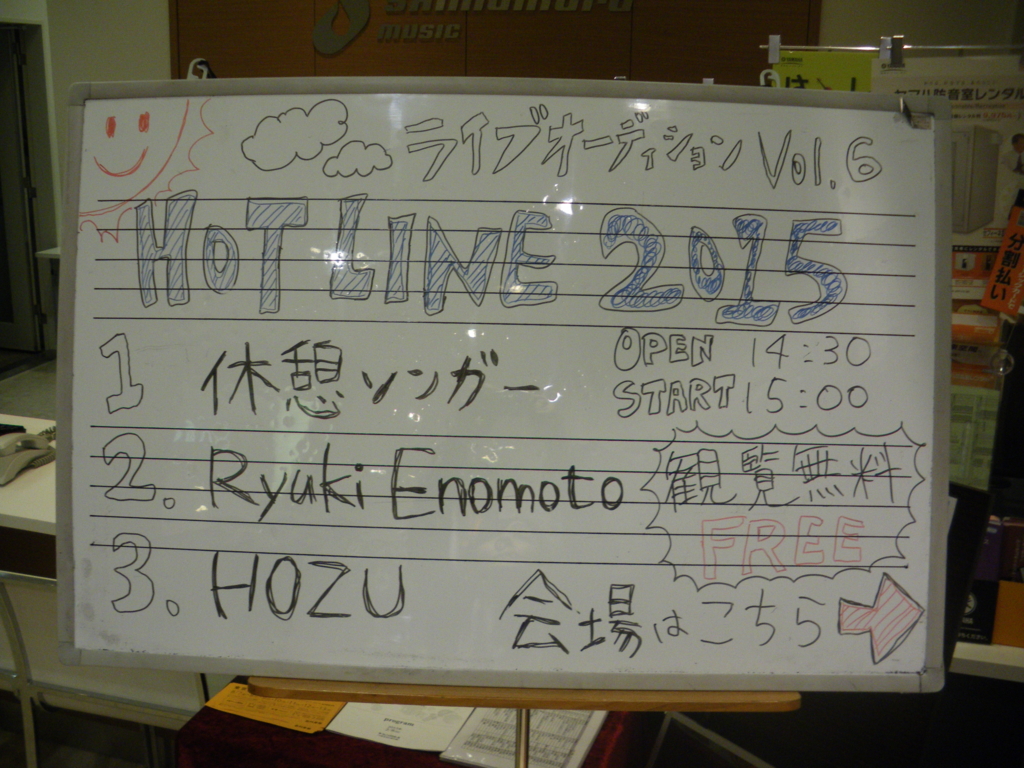 MUSIC
ライブオーディション Vol.6
HOTLINE 2015
1 休憩シンガー
OPEN 14:30
START 15:00
2. Ryuki Enomoto
観覧無料
FREE
3. HOZU
会場はこちら
ヤマハ防音室レンタル
分割払い
program